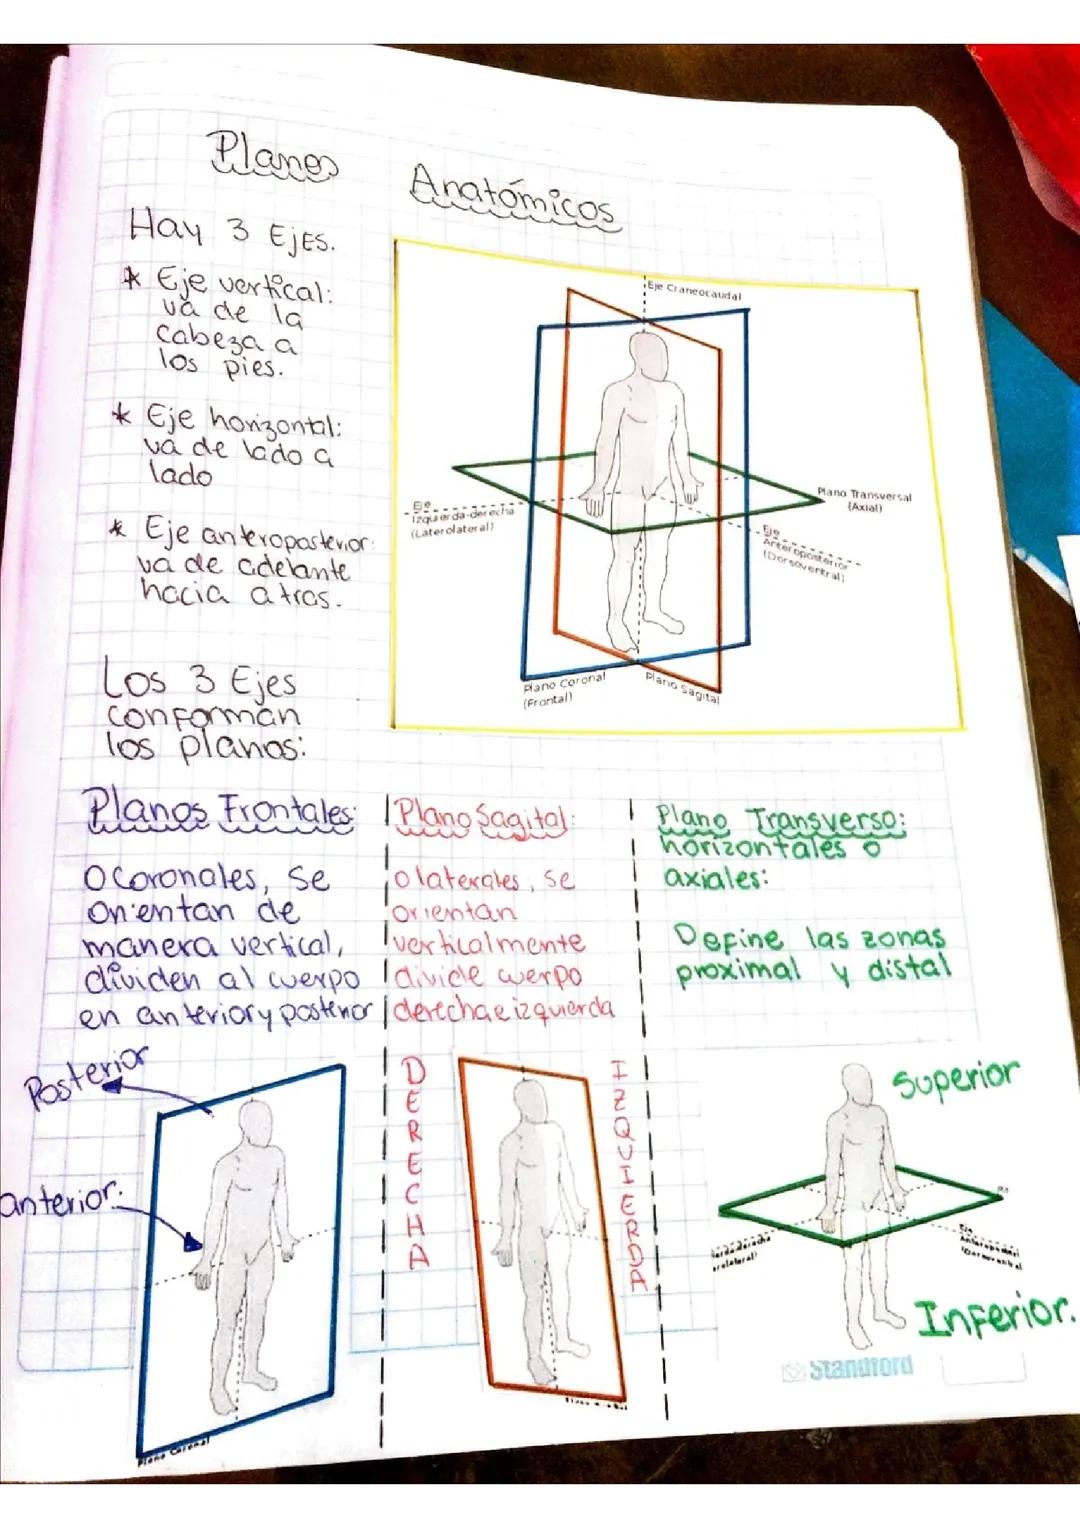 Planos Anatómicos
Hay 3 Ejes.
* Eje vertical:
va de la
cabeza a
los pies.
* Eje horizontal:
va de lado a
lado
* Eje anteroposterior:
va de adelante
hacia atras.
Eje Craneocaudal
Plano Transversal
(Axial)
Eje
Izquierda-derecha
(Laterolateral)
Eje
Anteroposterior
(Dorsoventral)
Plano Coronal
(Frontal)
Plano Sagital
Los 3 Ejes
conforman
los planos:
Planos Frontales:
O Coronales, se
orientan de
manera vertical,
dividen al cuerpo
en anterior y posterior
Plano Sagital:
o laterales, se
orientan
verticalmente
divide cuerpo
derecha e izquierda
Plano Transverso:
horizontales o
axiales:
Define las zonas
proximal y distal
Posterior
anterior:
Plano Coronal
DERECHA
IZQUIERDA
Superior
Eje
Inferior.
Standford